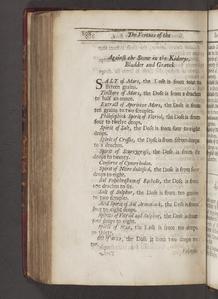 The Vertues of the
Against the Stone in the Kidneys,
Bladder and Gravel.
SALT of Mars, the Dose is from four to
sixteen grains.
Tincture of Mars, the Dose is from
half an ounce.
Extract of Aperitive Mars, the Dose is from ten
grains to two scruples.
Philosophick Spirit of Vitriol, the Dose is from
four to twelve drops.
Spirit of Salt, the Dose is from four to eight
drops.
the Dose is from fifteen drops
to drachm.
Spirit of the Dose is from six
drops to twenty.
Conserve of Cynorrhodon.
Spirit of Nitre dulcified, the Dose is from four
drops to eight.
Sal Polychrestum of the Dose is from
drachm to six.
Salt of Sulphur, the Dose is from ten grains
to two scruples.
Acid Spirit of Sal Armoniack, the Dose is from
to eight drops.
Spirits of Vitriol and Sulphur, the Dose is from
to eight drops.
Spirit of the Dose is from
to grains.
the Dose is from two drops to